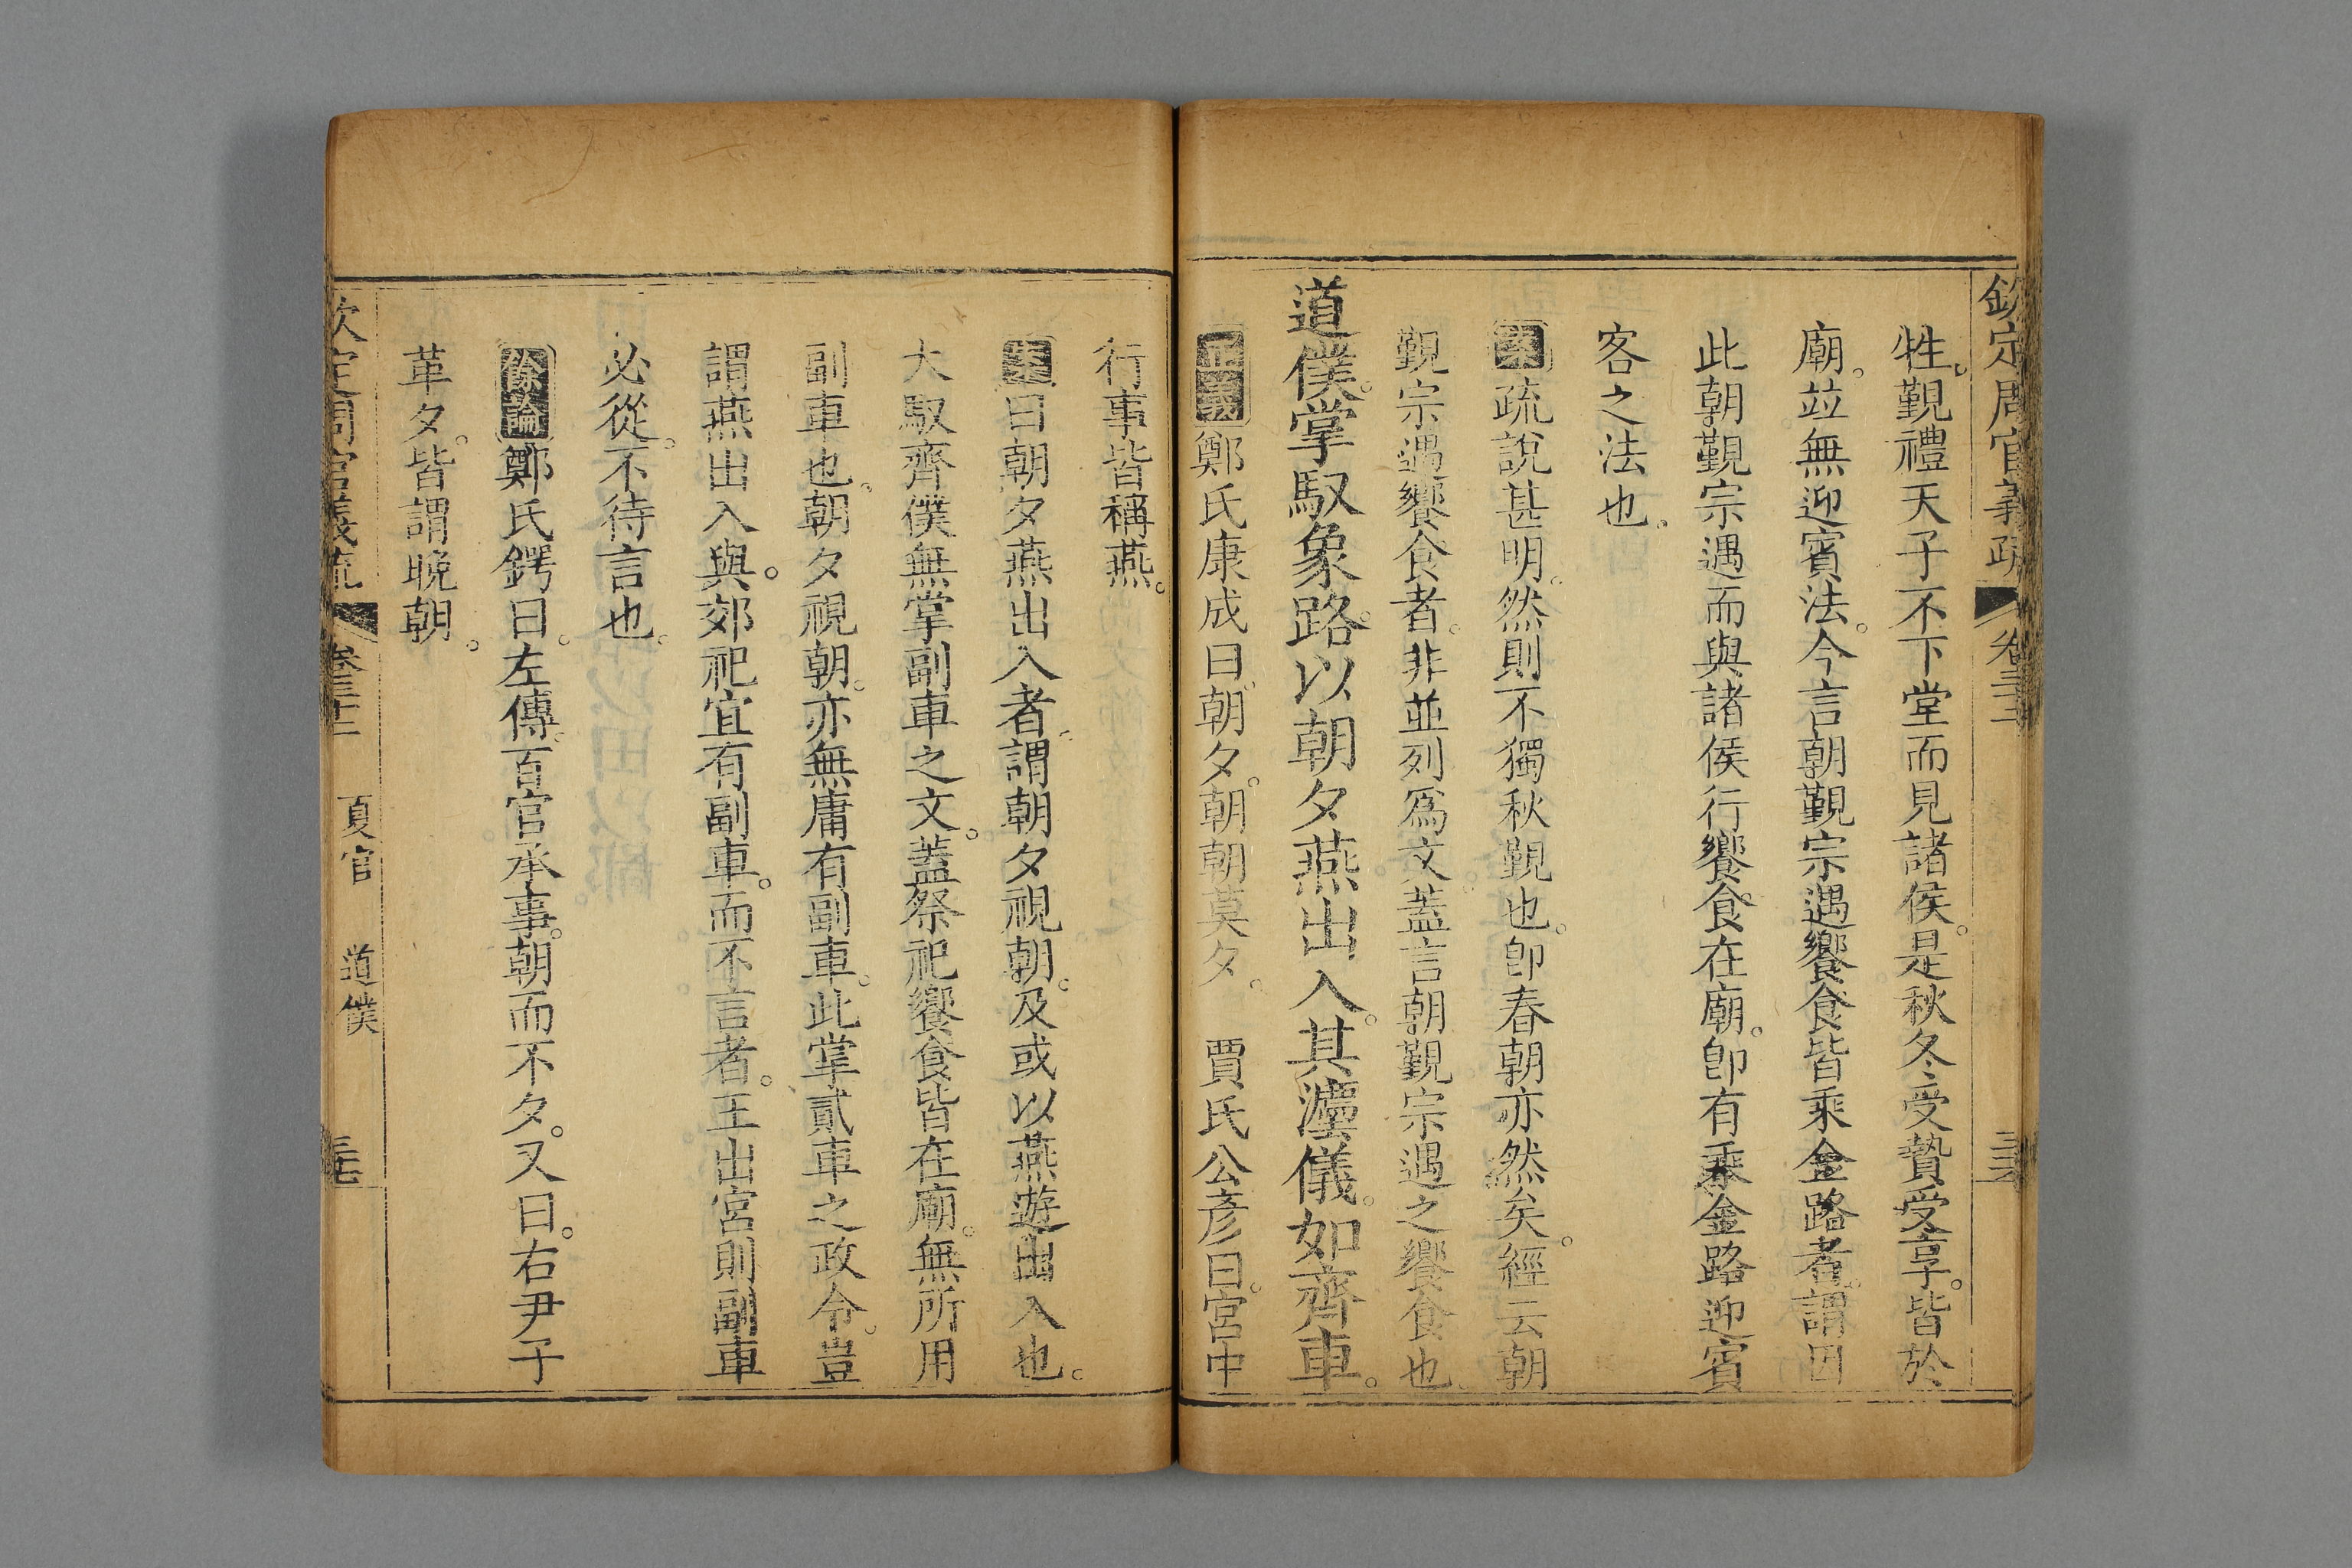 欽定周官義疏 卷三十二
牲。覲禮天子不下堂而見諸侯。是秋冬受贄受享。皆於
廟。竝無迎賓法。今言朝覲宗遇饗食皆乘金路者。謂因
此朝覲宗遇而與諸侯行饗食在廟。卽有乘金路迎賓
客之法也。
案疏說甚明。然則不獨秋覲也。卽春朝亦然矣。經云朝
覲宗遇饗食者。非並列爲文。蓋言朝覲宗遇之饗食也。
道僕。掌馭象路。以朝夕燕出入。其灋儀。如齊車。
正義鄭氏康成曰。朝夕。朝朝莫夕。 賈氏公彥曰。宮中
行事皆稱燕。
案曰朝夕燕出入者。謂朝夕視朝。及或以燕遊出入也。
大馭齊僕無掌副車之文。蓋祭祀饗食皆在廟。無所用
副車也。朝夕視朝。亦無庸有副車。此掌貳車之政令。豈
謂燕出入與。郊祀宜有副車。而不言者。王出宮則副車
必從。不待言也。
餘論鄭氏鍔曰。左傳。百官承事。朝而不夕。又曰。右尹子
革夕。皆謂晚朝。
欽定周官義疏 卷三十二 夏官 道僕 三七